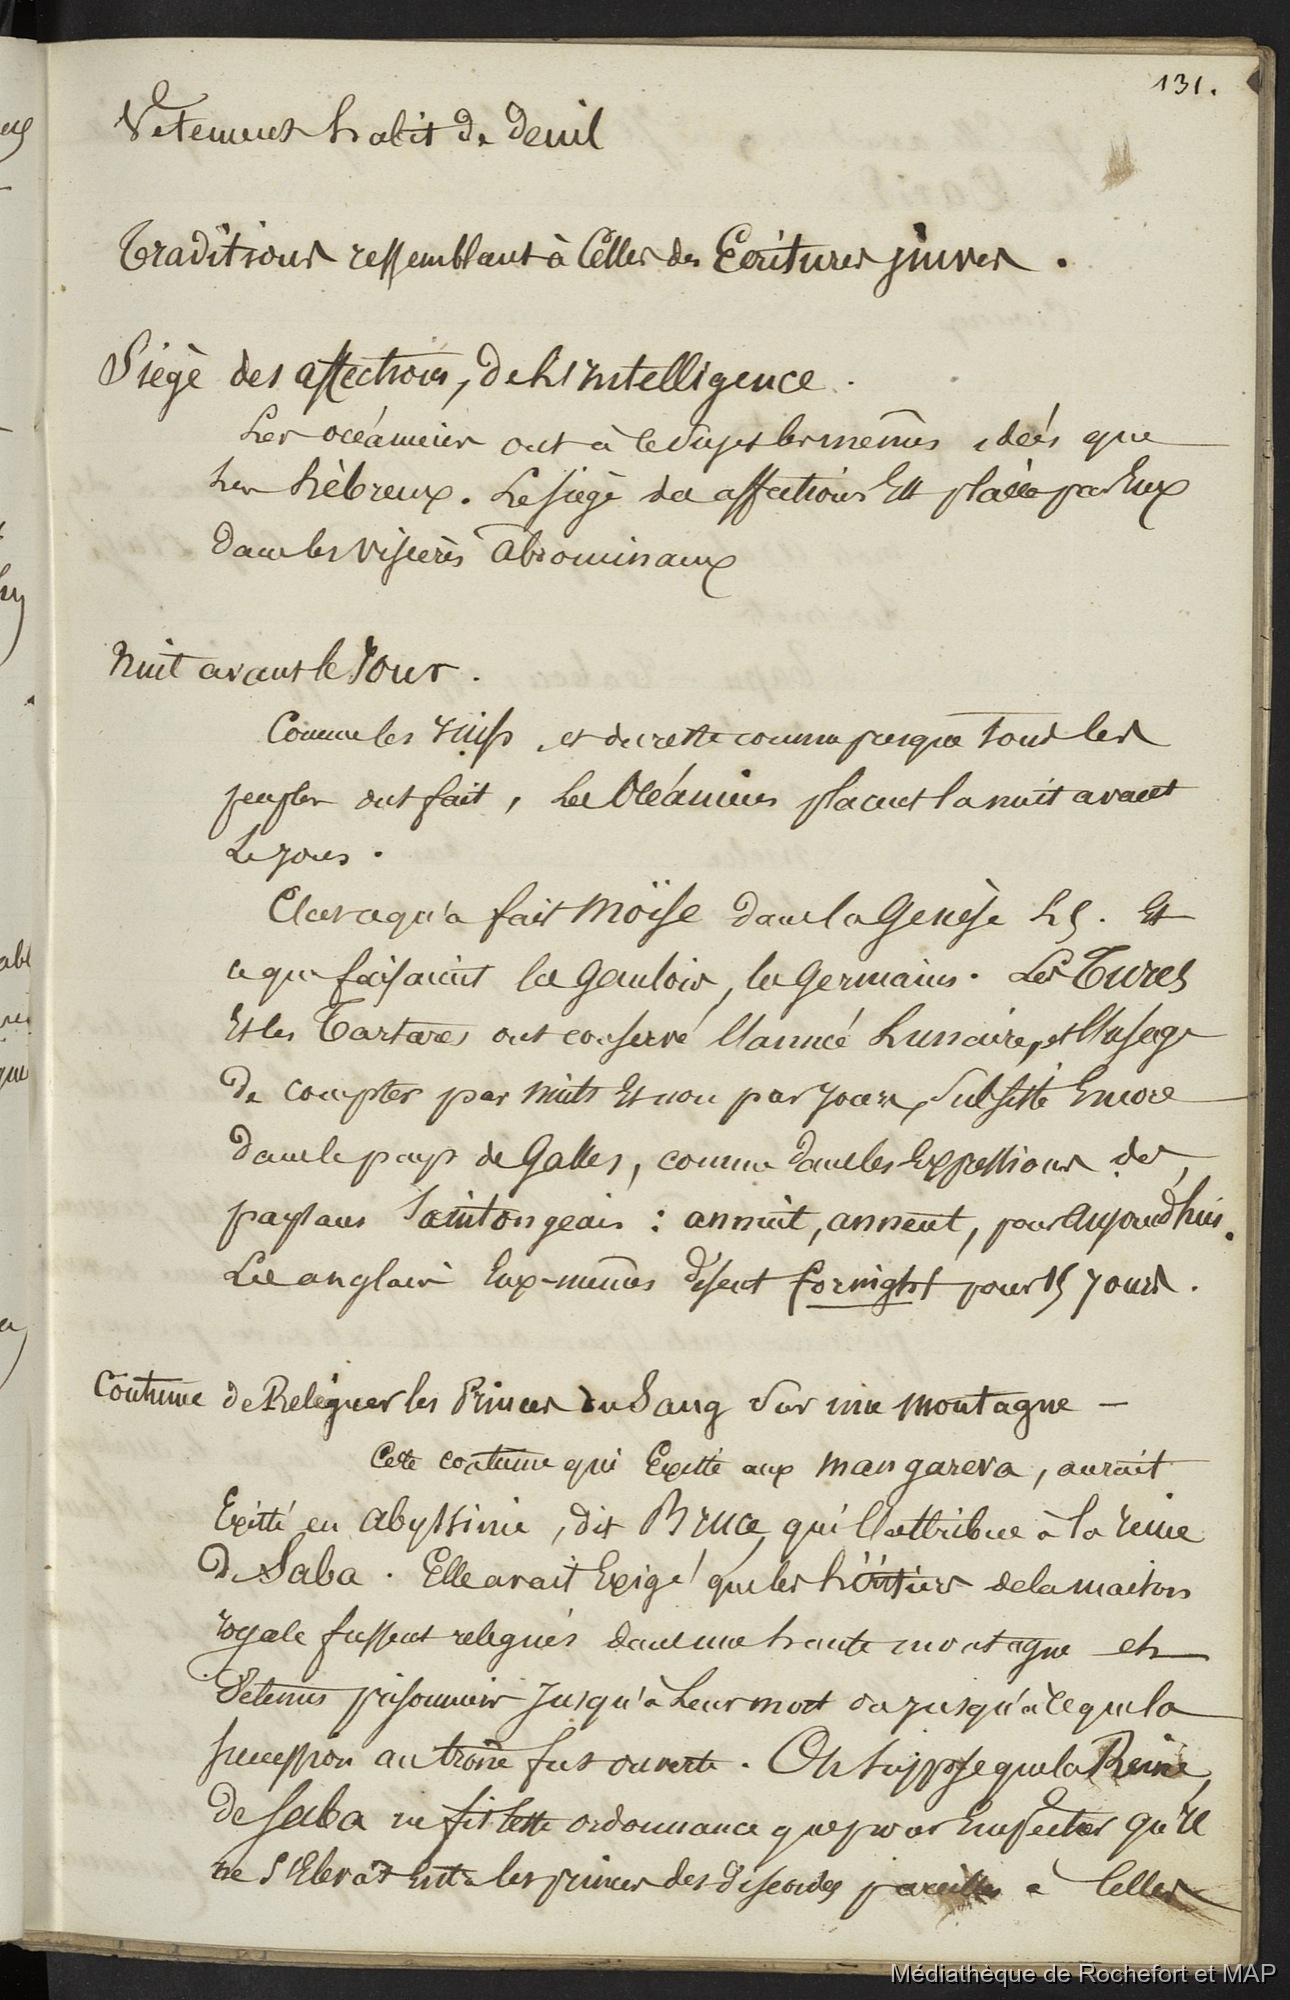 131.
Vetement habit de deuil
Traditions ressemblant à Celles des Ecritures juives.
Siège des affections, de l'intelligence.
Les océaniens ont à ce sujet les mêmes idées que
les hébreux. Le siège des affections Est placé par Eux
dans les viscères abdominaux
Nuit avant le Jour.
Comme les Juifs, et du reste comme presque tous les
peuples ont fait, les Océaniens placent la nuit avant
le jour.
C'est ce qu'a fait Moïse dans la Genèse Et
ce que faisaient les gaulois, les germains. Les Turcs
Et les Tartares ont conservé l'année lunaire, et l'usage
de compter par nuits Et non par jours, subsiste Encore
dans le pays de Galles, comme dans les Expressions des
paysans Saintongeais : annuit, anneut, pour aujourd'hui.
Les anglais Eux-mêmes disent fornight pour 15 jours.
Coutume de Reléguer les Princes du Sang sur une montagne —
Cette coutume qui Existe aux mangareva, aurait
Existé en abyssinie, dit Bruce, qui l'attribue à la reine
de Saba. Elle avait Exigé que les héritiers de la maison
royale fussent relegués dans une haute montagne et
détenus prisonniers jusqu'à leur mort ou jusqu'à ce que la
succession au trône fut ouverte. On suppose que la Reine
de Saba ne fit cette ordonnance que pour Empêcher qu'il
ne s'Elevât entre les princes des discordes pareilles à Celles
Médiathèque de Rochefort et MAP